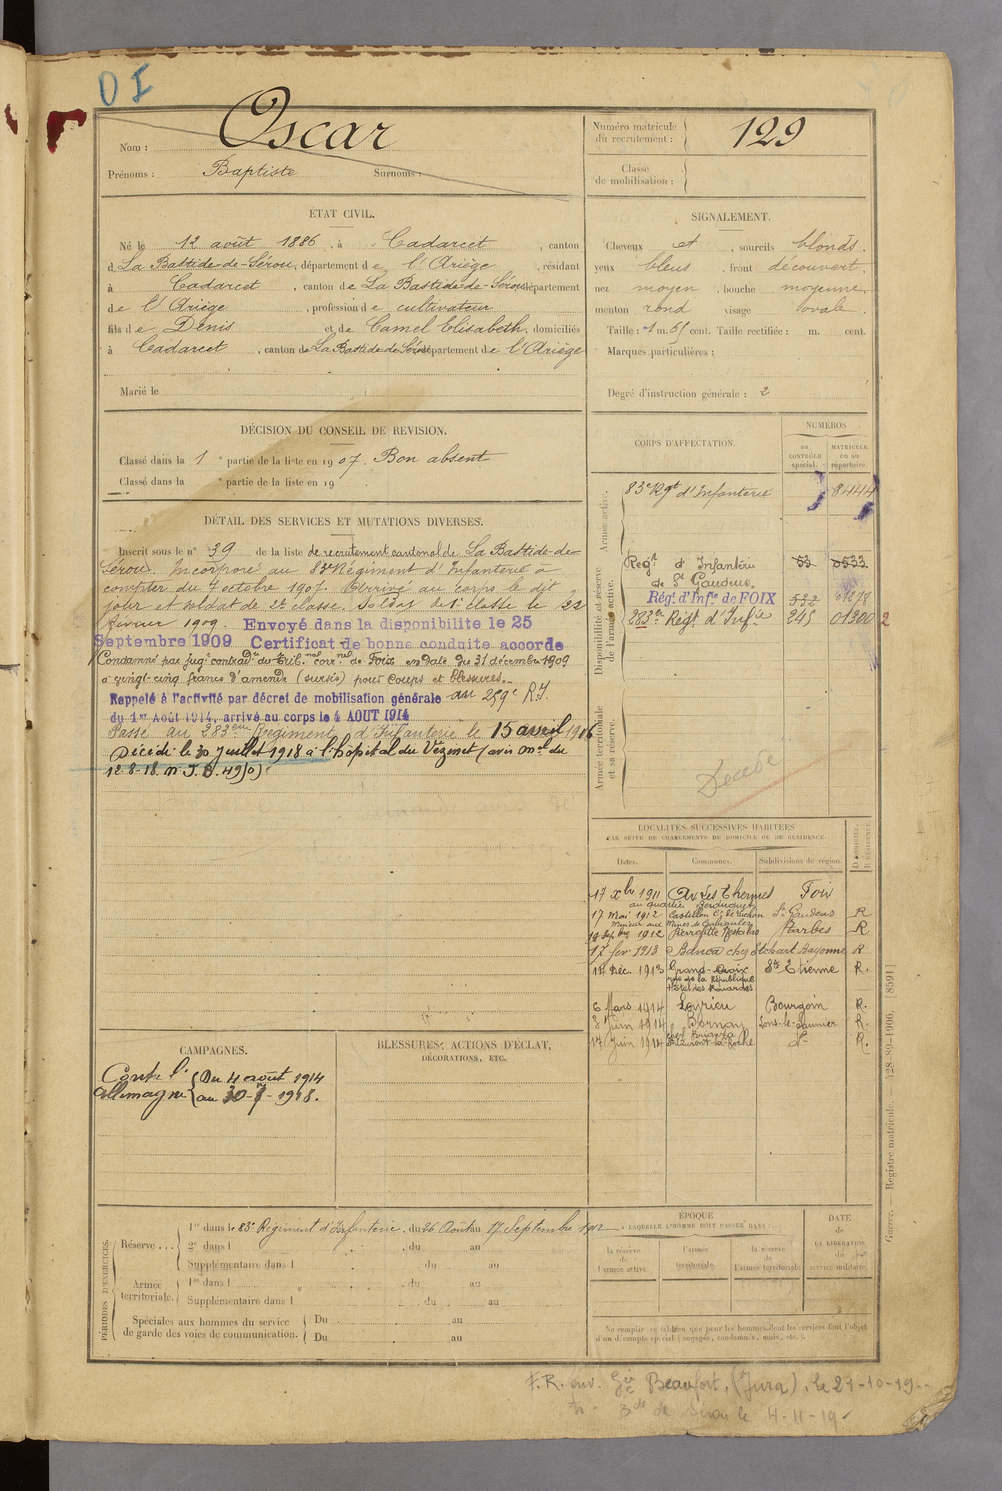 D I
Nom : Oscar
Prénoms : Baptiste Surnoms :
Numéro matricule du recrutement : 129
Classe de mobilisation :
ÉTAT CIVIL.
Né le 12 août 1886, à Cadarcet, canton
d La Bastide-de-Sérou, département de l'Ariège, résidant
à Cadarcet, canton de La Bastide-de-Sérou département
de l'Ariège, profession de cultivateur
fils de Denis et de Camel Elisabeth, domiciliés
à Cadarcet, canton de La Bastide-de-Sérou département de l'Ariège
Marié le
SIGNALEMENT.
Cheveux et, sourcils blonds.
yeux bleus, front découvert,
nez moyen, bouche moyenne,
menton rond visage ovale.
Taille : 1 m. 65 cent. Taille rectifiée : m. cent.
Marques particulières :
Degré d'instruction générale : 2
DÉCISION DU CONSEIL DE REVISION.
Classé dans la 1e partie de la liste en 1907. Bon absent
Classé dans la e partie de la liste en 19
DÉTAIL DES SERVICES ET MUTATIONS DIVERSES.
Inscrit sous le n° 39 de la liste de recrutement cantonal de La Bastide-de-
Sérou. Incorporé au 83e Régiment d'Infanterie à
compter du 4 octobre 1907. Arrivé au corps le dit
jour et soldat de 2e classe. Soldat de 1e classe le 22
février 1909. Envoyé dans la disponibilité le 25
Septembre 1909 Certificat de bonne conduite accordé
Condamné par jugt contradre du Tribnal cornel de Foix en date du 31 décembre 1909
à vingt-cinq francs d'amende (sursis) pour Coups et blessures.
Rappelé à l'activité par décret de mobilisation générale au 259e R.I.
du 1er Août 1914, arrivé au corps le 4 AOUT 1914
Passé au 283eme Régiment d'Infanterie le 15 avril 1916
Décédé le 30 juillet 1918 à l'hôpital du Vézinet (avis onel du
12-8-18.
CORPS D'AFFECTATION.
NUMÉROS
AU CONTRÔLE spécial.
MATRICULE ou au répertoire.
Armée active.
83e Rgt d'Infanterie 8444
Disponibilité et réserve de l'armée active.
Regt d'Infanterie de St Gaudens. 53 0533
Rég. d'Infie de FOIX 532 01278
283e Régt d'Infie 245 01300 2
Armée territoriale et sa réserve.
Décédé
LOCALITÉS SUCCESSIVES HABITÉES
PAR SUITE DE CHANGEMENTS DE DOMICILE OU DE RÉSIDENCE.
Dates. Communes. Subdivisions de région. DOMICILE. RÉSIDENCE.
17 Xbre 1911 Ax les Thermes Foix
au quartier
17 Mai 1912 Castillon Cn de Luchon St Gaudens R
Mineur aux Mines de
19 Sepbre 1912 Pierrefitte Nestalas Tarbes R
17 fev 1913 Banca chez Etchart Bayonne R
14 Déc. 1913 Grand-Croix St Etienne R.
rue de la République
Hôtel des
6 Mars 1914 Leyrieu Bourgoin R.
3 Juin 1914 Bornay Lons-le-Saunier R.
17 Juin 1914 St Laurent-la-Roche do R.
CAMPAGNES.
Contre l'Allemagne { Du 4 août 1914
au 30-7-1918.
BLESSURES, ACTIONS D'ÉCLAT,
DÉCORATIONS, ETC.
PÉRIODES D'EXERCICES.
Réserve... 1re dans le 83e Régiment d'Infanterie, du 26 Août au 17 Septembre 1912
2e dans l du au
Supplémentaire dans l du au
Armée territoriale. 1re dans l du au
Supplémentaire dans l du au
Spéciales aux hommes du service Du au
de garde des voies de communication. Du au
ÉPOQUE
À LAQUELLE L'HOMME DOIT PASSER DANS :
la réserve de l'armée active.
l'armée territoriale.
la réserve de l'armée territoriale
DATE
de
LA LIBÉRATION
du
service militaire.
Ne remplir ce tableau que pour les hommes dont les services font l'objet
d'un décompte spécial (engagés, condamnés, omis, etc.).
Guerre. — Registre matricule. — 428-89-1906. [8591]
F.R. env. Gie Beaufort, (Jura), le 21-10-19
le 4-11-19